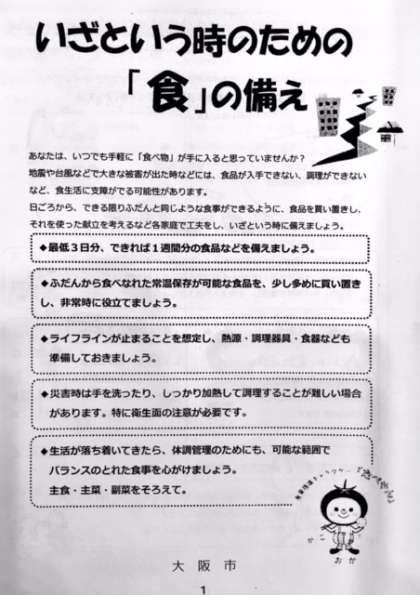 いざという時のための
「食」の備え
あなたは、いつでも手軽に「食べ物」が手に入ると思っていませんか？
地震や台風などで大きな被害が出た時などには、食品が入手できない、調理ができない
など、食生活に支障がでる可能性があります。
日ごろから、できる限りふだんと同じような食事ができるように、食品を買い置きし、
それを使った献立を考えるなど各家庭で工夫をし、いざという時に備えましょう。
◆最低３日分、できれば１週間分の食品などを備えましょう。
◆ふだんから食べなれた常温保存が可能な食品を、少し多めに買い置き
し、非常時に役立てましょう。
◆ライフラインが止まることを想定し、熱源・調理器具・食器なども
準備しておきましょう。
◆災害時は手を洗ったり、しっかり加熱して調理することが難しい場合
があります。特に衛生面の注意が必要です。
◆生活が落ち着いてきたら、体調管理のためにも、可能な範囲で
バランスのとれた食事を心がけましょう。
主食・主菜・副菜をそろえて。
大阪市
1